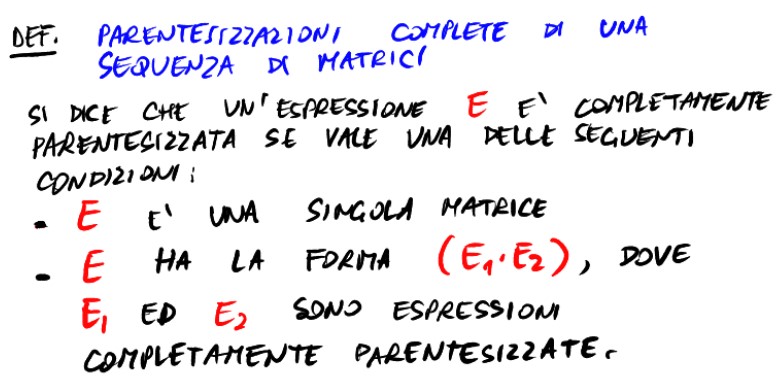 DEF. PARENTESIZZAZIONI COMPLETE DI UNA
SEQUENZA DI MATRICI
SI DICE CHE UN'ESPRESSIONE E E' COMPLETAMENTE
PARENTESIZZATA SE VALE UNA DELLE SEGUENTI
CONDIZIONI:
- E E' UNA SINGOLA MATRICE
- E HA LA FORMA (E₁·E₂), DOVE
E₁ ED E₂ SONO ESPRESSIONI
COMPLETAMENTE PARENTESIZZATE.